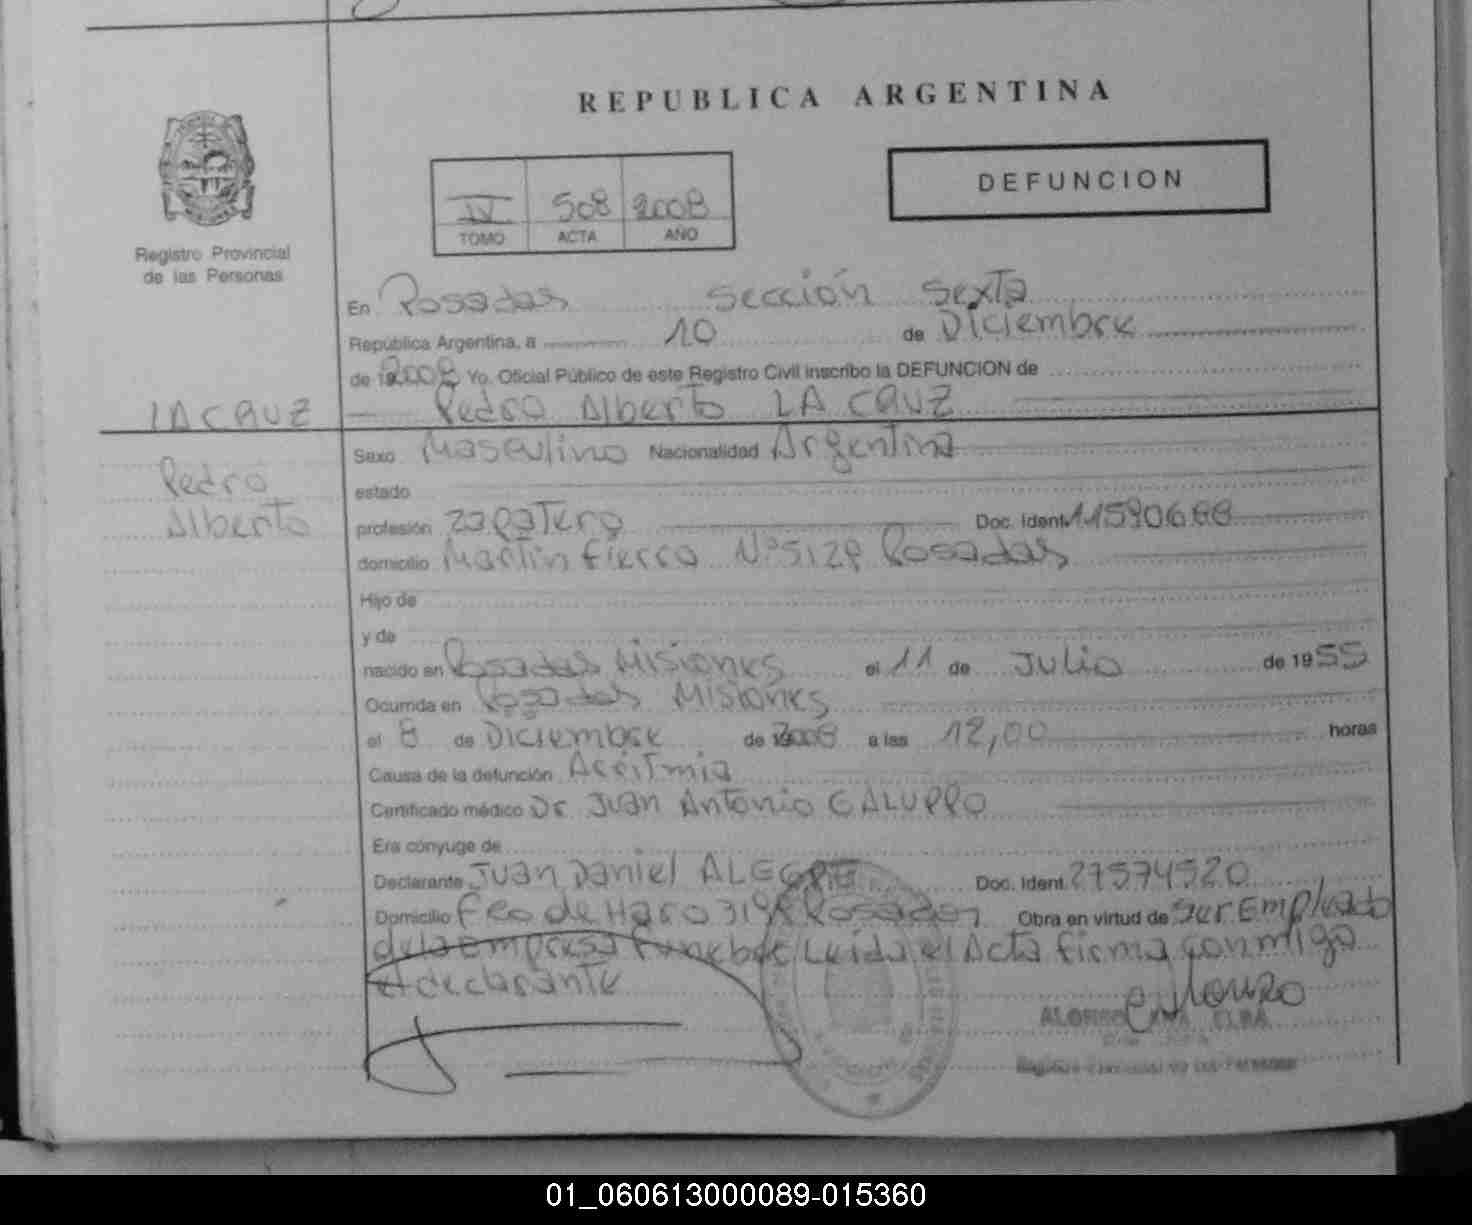 REPUBLICA ARGENTINA
DEFUNCION
IV 508 2008
TOMO ACTA AÑO
Registro Provincial
de las Personas
En Posadas Sección Sexta
República Argentina, a 10 de Diciembre
de 2008 Yo, Oficial Público de este Registro Civil inscribo la DEFUNCION de
LA CRUZ Pedro Alberto LA CRUZ
Sexo Masculino Nacionalidad Argentina
Pedro
estado
Alberto
profesión zapatero Doc. Ident. 11590688
domicilio Martín Fierro Nº 5129 Posadas
Hijo de
y de
nacido en Posadas Misiones el 11 de Julio de 1955
Ocurrida en Posadas Misiones
el 8 de Diciembre de 2008 a las 12,00 horas
Causa de la defunción Arritmia
Certificado médico Dr. Juan Antonio GALUPPO
Era cónyuge de
Declarante Juan Daniel ALEGRE Doc. Ident. 27574520
Domicilio Fco de Haro Posadas Obra en virtud de ser Empleado
de la Empresa Funebre Leida el Acta firma conmigo
el declarante
ELBA
01_060613000089-015360